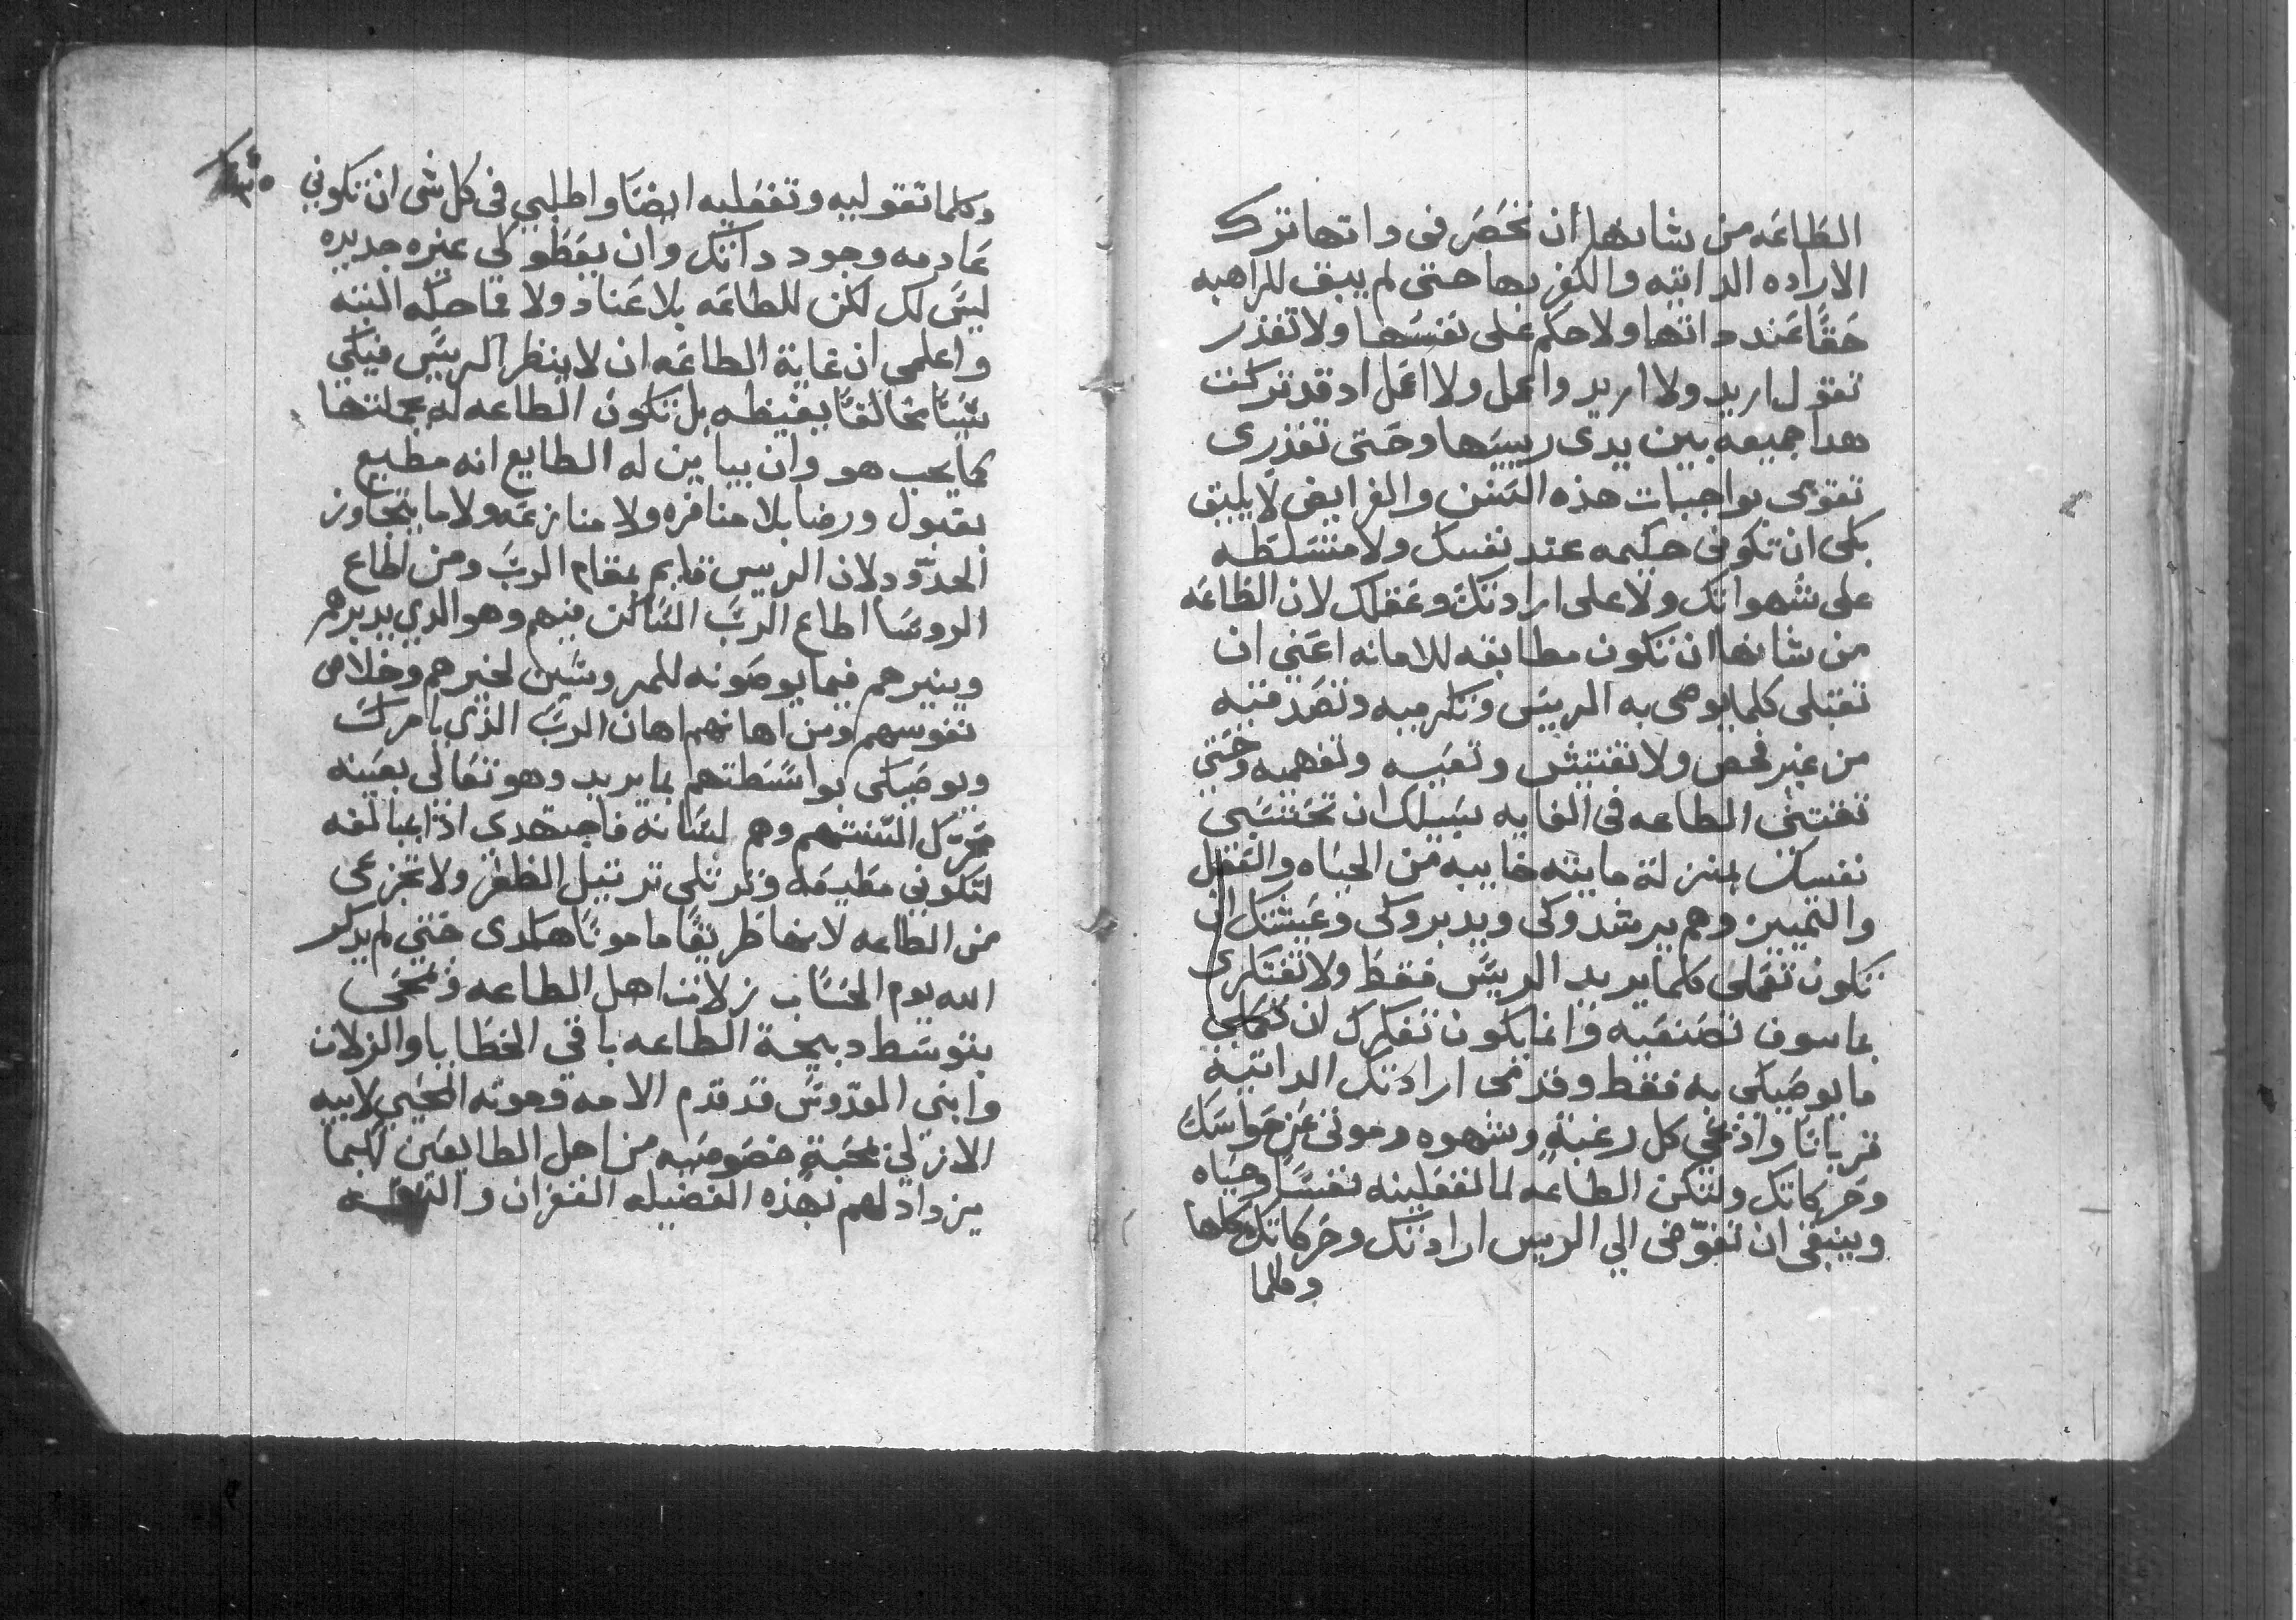 الطاعه من شانها أن تخصر في داتها ترك
الاراده الداتيه والكفر بها حتى لم يبق للراهبه
حقا عند داتها ولا حكم على نفسها ولا تقدر
تقول اريد ولا اريد واعمل ولا اعمل اد قد تركت
هدا جميعه بين يدى رييسها وحتى تقدرى
تقومى بواجبات هذه السنن والفرايض لا يليق
بكى ان تكونى حكيمه عند نفسك ولا متسلطه
على شهواتك ولا على ارادتك وعقلك لان الطاعه
من شانها ان تكون مطابقه للامانه اعني ان
تقبلى كلما يوصى به الرييس وتكرميه وتصدقيه
من غير فحص ولا تفتيش وتعيه وتفهميه وحتي
تقتني الطاعه في الغايه سبيلك ان تحتسبي
نفسك بمنزلة مايته خاييه من الحياه والعقل
والتمييز وهم يرشدوكى ويدبروكى وعيشتك ان
تكون تعملى كلما يريد الرييس فقط ولا تفتكرى
بما سوف تصنعيه وانما يكون تفكرك ان تكملي
ما يوصيكى به فقط وقدمى ارادتك الداتية
قربانا واذبحي كل رغبة وشهوه وموتى عن حواسك
وحركاتك ولتكن الطاعه لما تفعلينه نفسا وحياه
وينبغى ان تفوّضى الي الرييس ارادتك وحركاتك كلها
وكلما
وكلما تقوليه وتفعليه ايضا واطلبي في كل شى ان تكوني
عادمه وجود داتك وان يعطو لكي غيره جديده
ليس لك لكن للطاعه بلا عناد ولا مماحكه البته
واعلمى ان غاية الطاعه ان لا ينظر الرييس فيكي
شيًا مخالفًا يغيظه بل تكون الطاعه له بجملتها
كما يحب هو وان يباين له الطايع انه مطيع
بقبول ورضا بلا منافره ولا منازعه ولا ما يتجاوز
الحدّود لان الرييس قايم بمقام الربّ ومن اطاع
الروسا اطاع الربّ الساكن فيهم وهو الدي يدبرهم
وينيرهم فيما يوصونه للمروسين لخيرهم وخلاص
نفوسهم ومن اهانهم اهان الربّ الذي يامرك
ويوصيكى بواسطتهم بما يريد وهو تعالي بعينه
محرّك السنتهم وهم لسانه فاجتهدي اذا بمبالغه
لتكوني مطيعه وترتلى ترتيل الظفر ولا تجزعى
من الطاعه لا مخاطر يقا مامونًا هكدى حتي لم يدكر
الله يوم الحساب زلات اهل الطاعه وتمحى
بتوسط دبيحة الطاعه باقي الخطايا والزلات
وابني القدّوس قد قدم الامه وموته المحيي لابيه
الازلي بمحبة خصوصيه من اجل الطايعين لكيما
يزداد لهم بهذه الفضيله الغفران